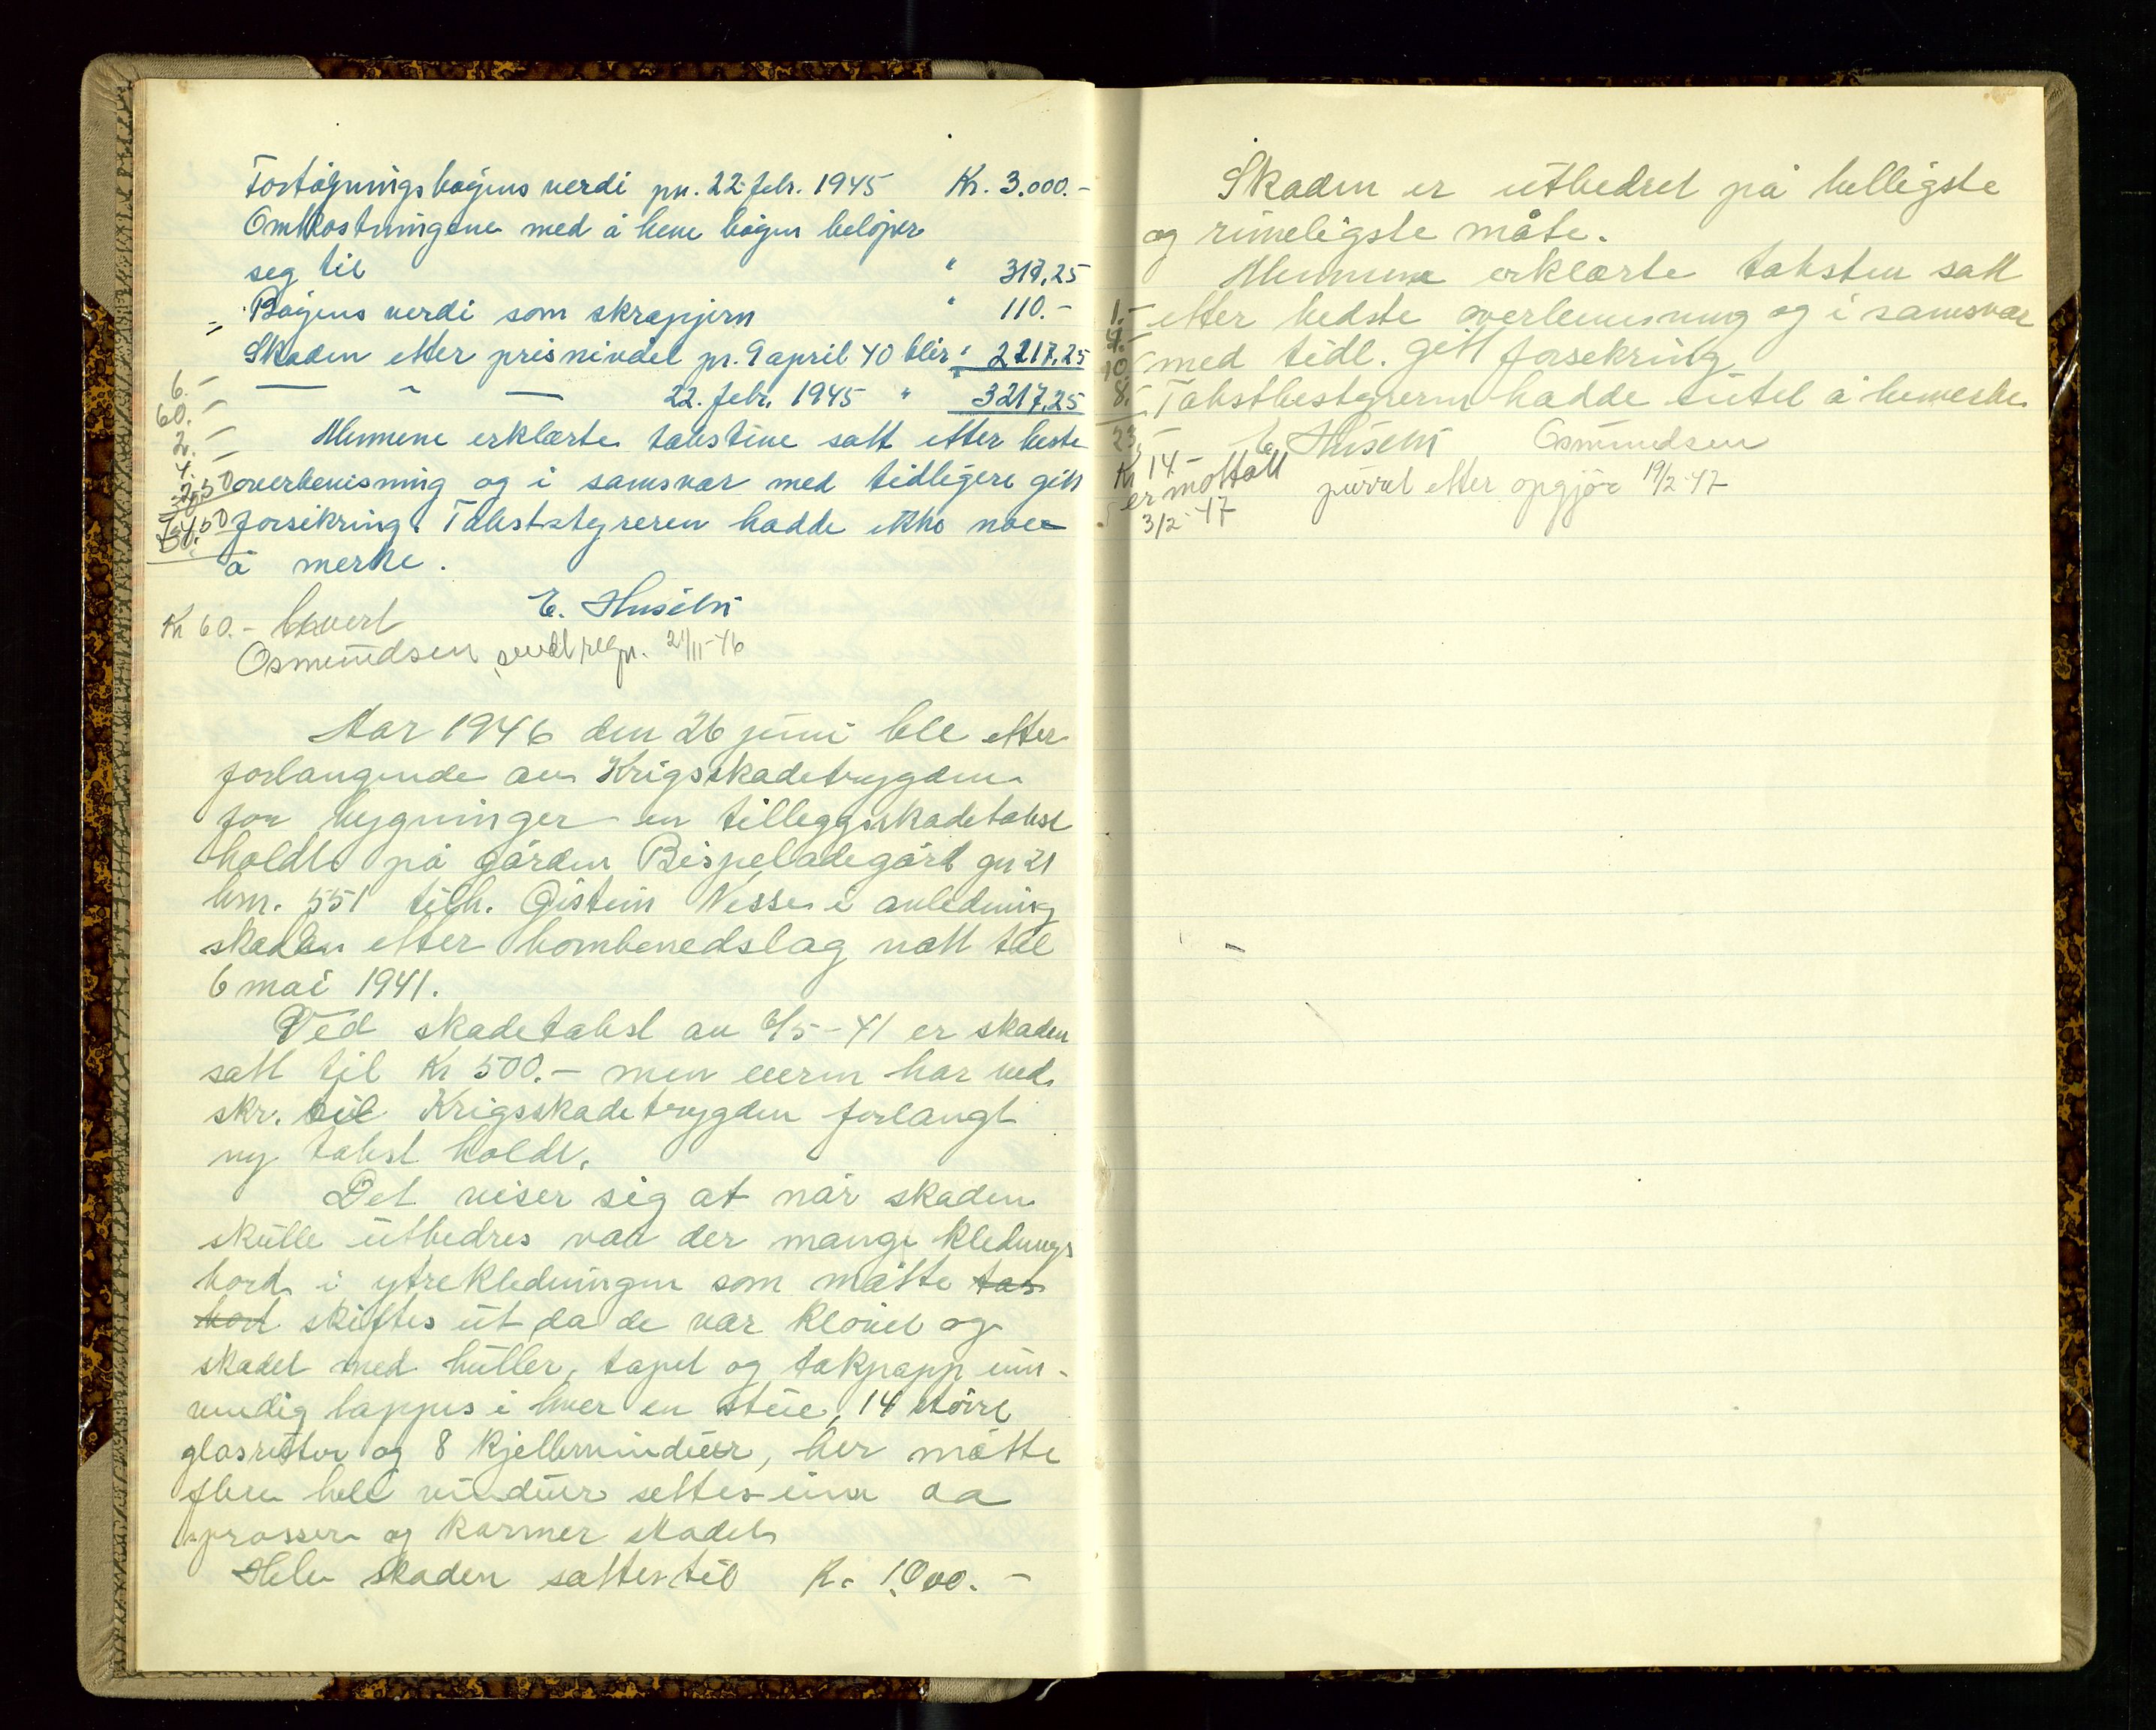 Fortøyningsbøyens verdi pr. 22 febr. 1945 Kr. 3.000.-
Omkostningene med å heve bøyen beløper
seg til " 317,25
÷ Bøyens verdi som skrapjern " 110.-
Skaden etter prisnivået pr. 9 april 40 blir " 2217,25
— " — 22. febr. 1945 " 3217,25
6.-
60.-
2.-
4.-
Mennene erklærte takstene satt etter beste
overbevisning og i samsvar med tidligere gitt
forsikring. Takstbstyreren hadde ikke noe
å merke.
Kr 60.- Evert E. Husebø
Osmundsen sendt regn. 21/11-46
Aar 1946 den 26 juni ble etter
forlangende av Krigsskadetrygden
for bygninger en tilleggsskadetakst
holdt på gården Bispeladegård gn 21
bnr. 551 tilh. Øistein Nesse i anledning
skaden etter bombenedslag natt til
6 mai 1941.
Ved skadetakst av 6/5-41 er skaden
satt til Kr 500.- men eieren har ved
skr. til Krigsskadetrygden forlangt
ny takst holdt.
Det viser sig at når skaden
skulle utbedres var der mange klednings
bord i ytrekledningen som måtte tas
mot skiftes ut da de var kløvet og
skadet med huller, tapet og takpapp inn-
vendig lappes i hver en stue, 14 større
glasruter og 8 kjellervinduer, her måtte
flere hele vinduer settes inn da
sprosser og karmer skadet
Hele skaden sattes til Kr 1.000.-
Skaden er utbedret på billigste
og rimeligste måte.
Mennene erklærte taksten satt
1.- etter bedste overbevisning og i samsvar
4.-
10 med tidl. gitt forsekring
8.- Takstbestyreren hadde intet å bemerke.
23,- E. Husebø Osmundsen
Kr 14.-
er mottatt purret etter opgjør 19/2-47
3/2-47